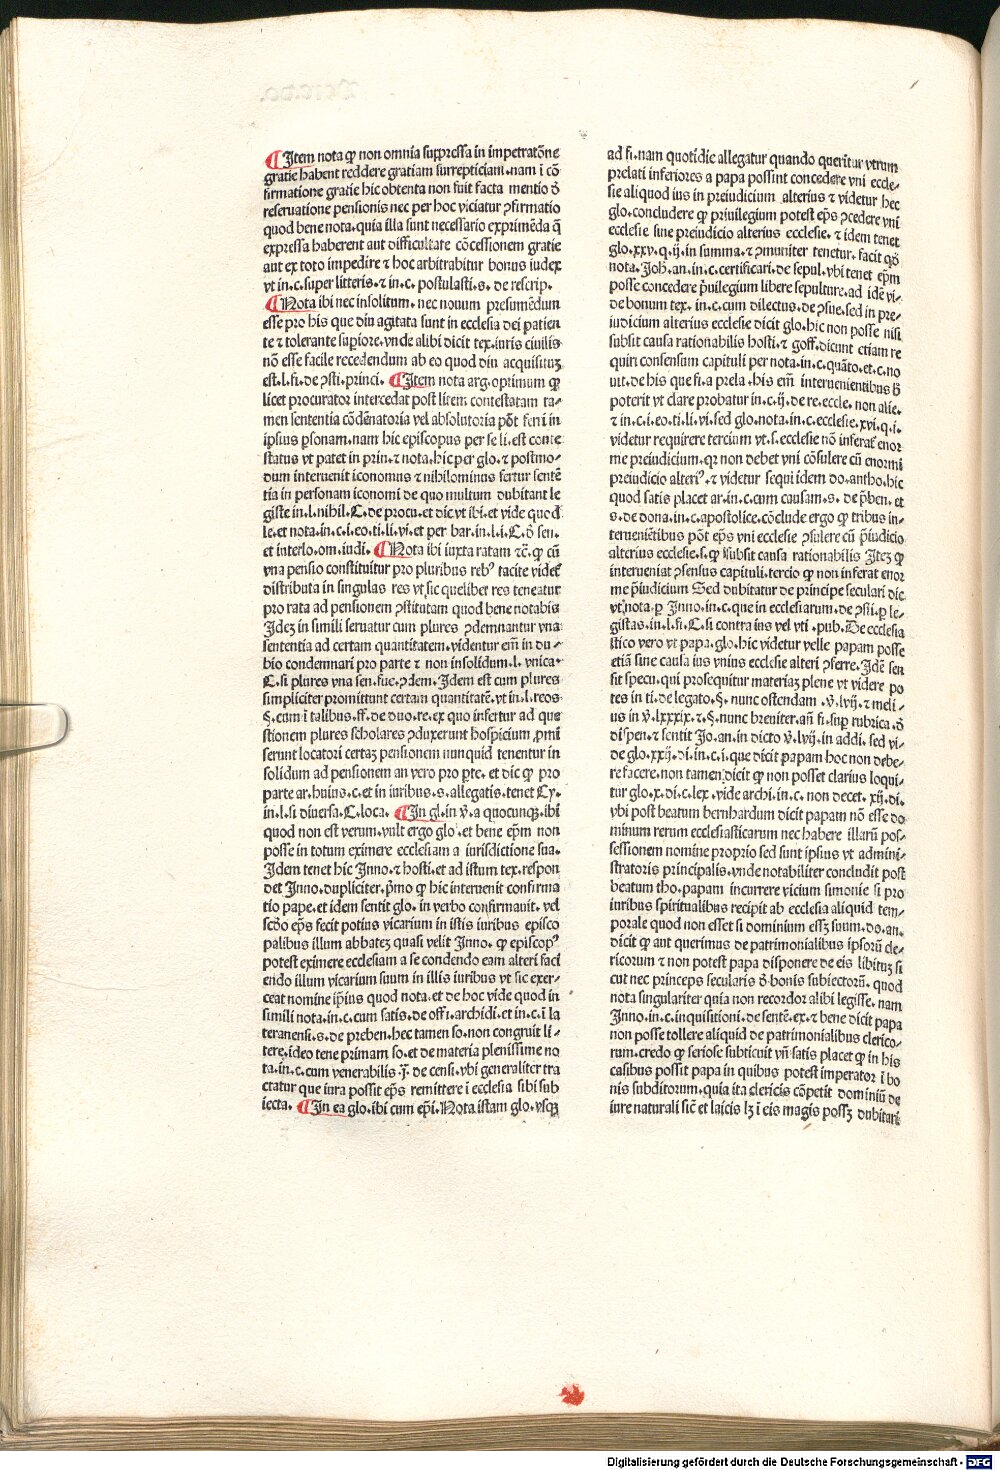 ¶Item nota ꝙ non omnia suppressa in impetratõne
gratie habent reddere gratiam surrepticiam.nam ĩ cõ
firmatione gratie hic obtenta non fuit facta mentio ð
reseruatione pensionis nec per hoc viciatur ꝯfirmatio
quod bene nota.quia illa sunt necessario exprimẽda q̃
expressa haberent aut difficultate cõcessionem gratie
aut ex toto impedire ⁊ hoc arbitrabitur bonus iudex
vt in.c.super litteris.⁊ in.c.postulasti.s.de rescrip.
¶Nota ibi nec insolitum.nec nouum presumẽdum
esse pro his que diu agitata sunt in ecclesia dei patien
te ⁊ tolerante supiore.vnde alibi dicit tex.iuris ciuilis
nõ esse facile recedendum ab eo quod diu acquisituꝫ
est.l.fi.de ꝯsti.princi. ¶Item nota arg.optimum ꝙ
licet procurator intercedat post litem contestatam ta-
men sententia cõdẽnatoria vel absolutoria põt ferri in
ipsius ꝑsonam.nam hic episcopus per se li.est conte
status vt patet in prin.⁊ nota.hic per glo.⁊ postmo-
dum interuenit iconomus ⁊ nihilominus fertur sentẽ
tia in personam iconomi de quo multum dubitant le
giste in.l.nihil.C.de procu.et dic vt ibi.et vide quod
le.et nota.in.c.i.eo.ti.li.vi.et per bar.in.l.i.C.ð sen.
et interlo.om.iudi. ¶Nota ibi iuxta ratam ⁊c̃.ꝙ cũ
vna pensio constituitur pro pluribus rebꝰ tacite videt
distributa in singulas res vt sic quelibet res teneatur
pro rata ad pensionem ꝯstitutam quod bene notabis
Ideꝫ in simili seruatur cum plures ꝯdemnantur vna
sententia ad certam quantitatem.videntur em̃ in du-
bio condemnari pro parte ⁊ non insolidum.l.vnica.
C.si plures vna sen.fue.ꝯdem.Idem est cum plures
simpliciter promittunt certam quantitatẽ.vt in.l.reos
§.cum ĩ talibus.ff.de duo.re.ex quo infertur ad que
stionem plures scholares ꝯduxerunt hospicium ꝓmi
serunt locatori certaꝫ pensionem nunquid tenentur in
solidum ad pensionem an vero pro ꝑte.et dic ꝙ pro
parte ar.huius.c.et in iuribus.s.allegatis.tenet Cy.
in.l.si diuersa.C.loca. ¶In gl.in v̾.a quocunqꝫ.ibi
quod non est verum.vult ergo glo.et bene ep̃m non
posse in totum eximere ecclesiam a iurisdictione sua.
Idem tenet hic Inno.⁊ hosti.et ad istum tex.respon
det Inno.dupliciter.p̃mo ꝙ hic interuenit confirma
tio pape.et idem sentit glo.in verbo confirmauit.vel
scðo ep̃s fecit potius vicarium in istis iuribus episco
palibus illum abbateꝫ quasi velit Inno.ꝙ episcopꝰ
potest eximere ecclesiam a se condendo eam alteri faci
endo illum vicarium suum in illis iuribus vt sic exer-
ceat nomine ip̃ius quod nota.et de hoc vide quod in
simili nota.in.c.cum satis.de offi.archidi.et in.c.ĩ la
teranensi.s.de preben.hec tamen so.non congruit li-
tere.ideo tene primam so.et de materia plenissime no
ta.in.c.cum venerabilis.j̃.de censi.vbi generaliter tra
ctatur que iura possit ep̃s remittere ĩ ecclesia sibi sub
iecta. ¶In ea glo.ibi cum ep̃i.Nota istam glo.vsqꝫ
ad fi.nam quotidie allegatur quando queritur vtrum
prelati inferiores a papa possint concedere vni eccle-
sie aliquod ius in preiudicium alterius ⁊ videtur hec
glo.concludere ꝙ priuilegium potest ep̃s ꝯcedere vni
ecclesie sine preiudicio alterius ecclesie.⁊ idem tenet
glo.xxv.q.ij.in summa.⁊ ꝯmuniter tenetur.facit qð
nota.Joh.an.in.c.certificari.de sepul.vbi tenet ep̃m
posse concedere p̃uilegium libere sepulture.ad idẽ vi-
de bonum tex.in.c.cum dilectus.de ꝯsue.sed in pre-
iudicium alterius ecclesie dicit glo.hic non posse nisi
subsit causa rationabilis hosti.⁊ goff.dicunt etiam re
quiri consensum capituli per nota.in.c.quãto.et.c.no
uit.de his que fi.a prela.his em̃ interuenientibus
poterit vt clare probatur in.c.ij.de re.eccle.non alie.
⁊ in.c.i.eo.ti.li.vi.sed glo.nota.in.c.ecclesie.xvi.q.i.
videtur requirere tercium vt.s.ecclesie nõ inferat enor
me preiudicium.qr non debet vni cõsulere cũ enormi
preiudicio alteriꝰ.⁊ videtur sequi idem do.antho.hic
quod satis placet ar.in.c.cum causam.s.de p̃ben.et
s.de dona.in.c.apostolice.cõclude ergo ꝙ tribus in-
terueniẽtibus põt ep̃s vni ecclesie ꝯsulere cũ p̃iudicio
alterius ecclesie.s.ꝙ subsit causa rationabilis Iteꝫ ꝙ
interueniat ꝯsensus capituli.tercio ꝙ non inferat enor
me p̃iudicium Sed dubitatur de principe seculari dic
vt nota.ꝑ Inno.in.c.que in ecclesiarum.de ꝯsti.ꝑ le-
gistas.in.l.fi.C.si contra ius vel vti.pub.De ecclesia
stico vero vt papa.glo.hic videtur velle papam posse
etiã sine causa ius vnius ecclesie alteri ꝯferre.Idẽ sen
sit specu.qui prosequitur materiaꝫ plene vt videre po
tes in ti.de legato.§.nunc ostendam.v̾.lvij.⁊ meli-
us in v̾.lxxxix.⁊.§.nunc breuiter.añ fi.suꝑ rubrica.ð
dispen.⁊ sentit Jo.an.in dicto v̾.lvij.in addi.sed vi-
de glo.xxij.di.in.c.i.que dicit papam hoc non debe-
re facere.non tamen dicit ꝙ non posset clarius loqui
tur glo.x.di.c.lex.vide archi.in.c.non decet.xij.di.
vbi post beatum bernhardum dicit papam nõ esse do
minum rerum ecclesiasticarum nec habere illarũ pos-
sessionem nomine proprio sed sunt ipsius vt admini-
stratoris principalis.vnde notabiliter concludit post
beatum tho.papam incurrere vicium simonie si pro
iuribus spiritualibus recipit ab ecclesia aliquid tem-
porale quod non esset si dominium esseꝫ suum.do.an.
dicit ꝙ aut querimus de patrimonialibus ipsorũ cle-
ricorum ⁊ non potest papa disponere de eis libituꝫ si
cut nec princeps secularis ð bonis subiectorũ.quod
nota singulariter quia non recordor alibi legisse.nam
Inno.in.c.inquisitioni.de sentẽ.ex.⁊ bene dicit papa
non posse tollere aliquid de patrimonialibus clerico-
rum.credo ꝙ seriose subticuit vñ satis placet ꝙ in his
casibus possit papa in quibus potest imperator ĩ bo
nis subditorum.quia ita clericis cõpetit dominiũ de
iure naturali sic̃ et laicis lꝫ ĩ eis magis possꝫ dubitari
Digitalisierung gefördert durch die Deutsche Forschungsgemeinschaft - DFG